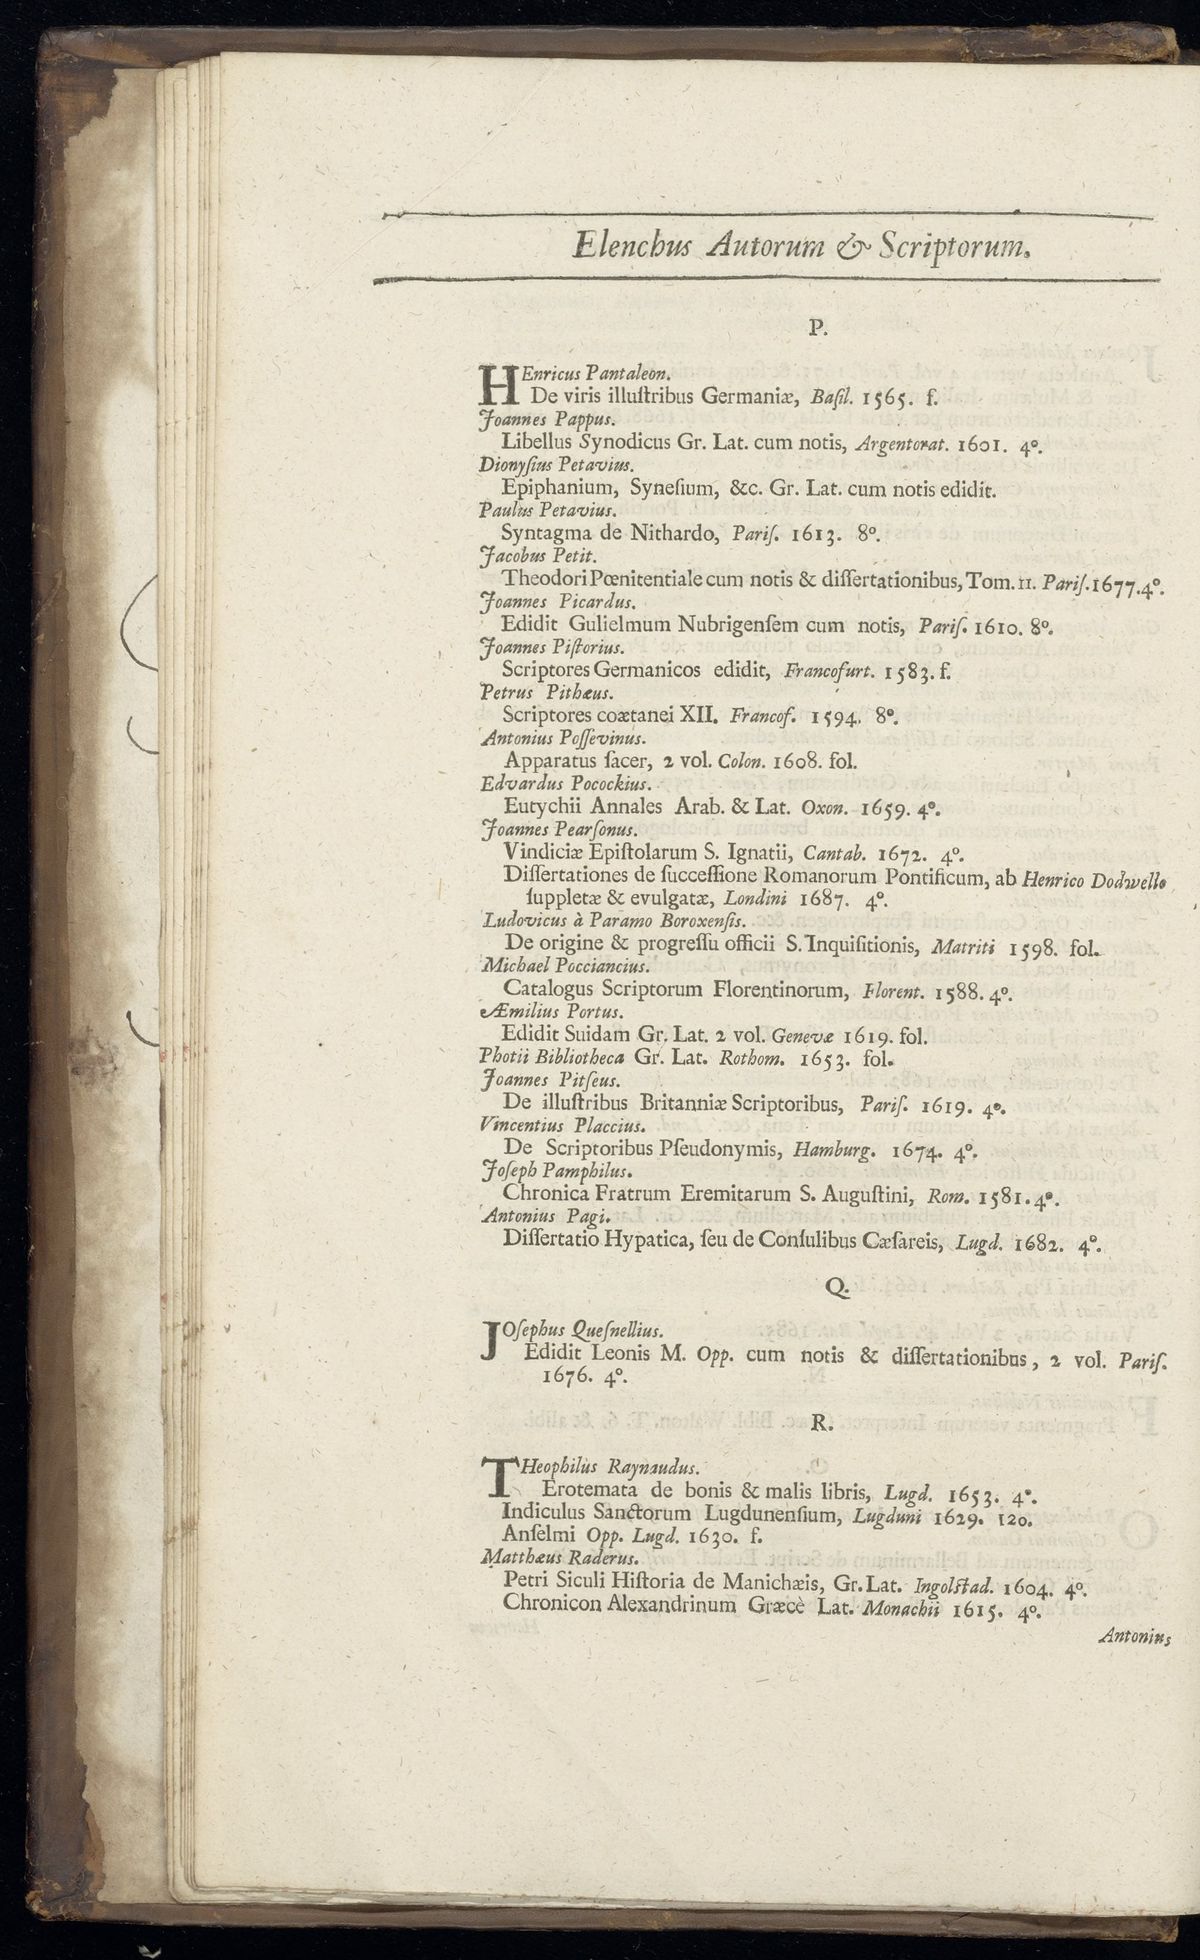 Elenchus Autorum & Scriptorum.
P.
HEnricus Pantaleon.
De viris illuſtribus Germaniæ, Baſil. 1565. f.
Joannes Pappus.
Libellus Synodicus Gr. Lat. cum notis, Argentorat. 1601. 4º.
Dionyſius Petavius.
Epiphanium, Syneſium, &c. Gr. Lat. cum notis edidit.
Paulus Petavius.
Syntagma de Nithardo, Pariſ. 1613. 8º.
Jacobus Petit.
Theodori Pœnitentiale cum notis & diſſertationibus, Tom. II. Pariſ. 1677. 4º.
Joannes Picardus.
Edidit Gulielmum Nubrigenſem cum notis, Pariſ. 1610. 8º.
Joannes Piſtorius.
Scriptores Germanicos edidit, Francofurt. 1583. f.
Petrus Pithæus.
Scriptores coætanei XII. Francof. 1594. 8º.
Antonius Poſſevinus.
Apparatus ſacer, 2 vol. Colon. 1608. fol.
Edvardus Pocockius.
Eutychii Annales Arab. & Lat. Oxon. 1659. 4º.
Joannes Pearſonus.
Vindiciæ Epiſtolarum S. Ignatii, Cantab. 1672. 4º.
Diſſertationes de ſucceſſione Romanorum Pontificum, ab Henrico Dodwello
ſuppletæ & evulgatæ, Londini 1687. 4º.
Ludovicus à Paramo Boroxenſis.
De origine & progreſſu officii S. Inquiſitionis, Matriti 1598. fol.
Michael Pocciancius.
Catalogus Scriptorum Florentinorum, Florent. 1588. 4º.
Æmilius Portus.
Edidit Suidam Gr. Lat. 2 vol. Genevæ 1619. fol.
Photii Bibliotheca Gr. Lat. Rothom. 1653. fol.
Joannes Pitſeus.
De illuſtribus Britanniæ Scriptoribus, Pariſ. 1619. 4º.
Vincentius Placcius.
De Scriptoribus Pſeudonymis, Hamburg. 1674. 4º.
Joſeph Pamphilus.
Chronica Fratrum Eremitarum S. Auguſtini, Rom. 1581. 4º.
Antonius Pagi.
Diſſertatio Hypatica, ſeu de Conſulibus Cæſareis, Lugd. 1682. 4º.
Q.
JOſephus Queſnellius.
Edidit Leonis M. Opp. cum notis & diſſertationibus, 2 vol. Pariſ.
1676. 4º.
R.
THeophilus Raynaudus.
Erotemata de bonis & malis libris, Lugd. 1653. 4º.
Indiculus Sanctorum Lugdunenſium, Lugduni 1629. 12o.
Anſelmi Opp. Lugd. 1630. f.
Matthæus Raderus.
Petri Siculi Hiſtoria de Manichæis, Gr. Lat. Ingolſtad. 1604. 4º.
Chronicon Alexandrinum Græcè Lat. Monachii 1615. 4º.
Antonius